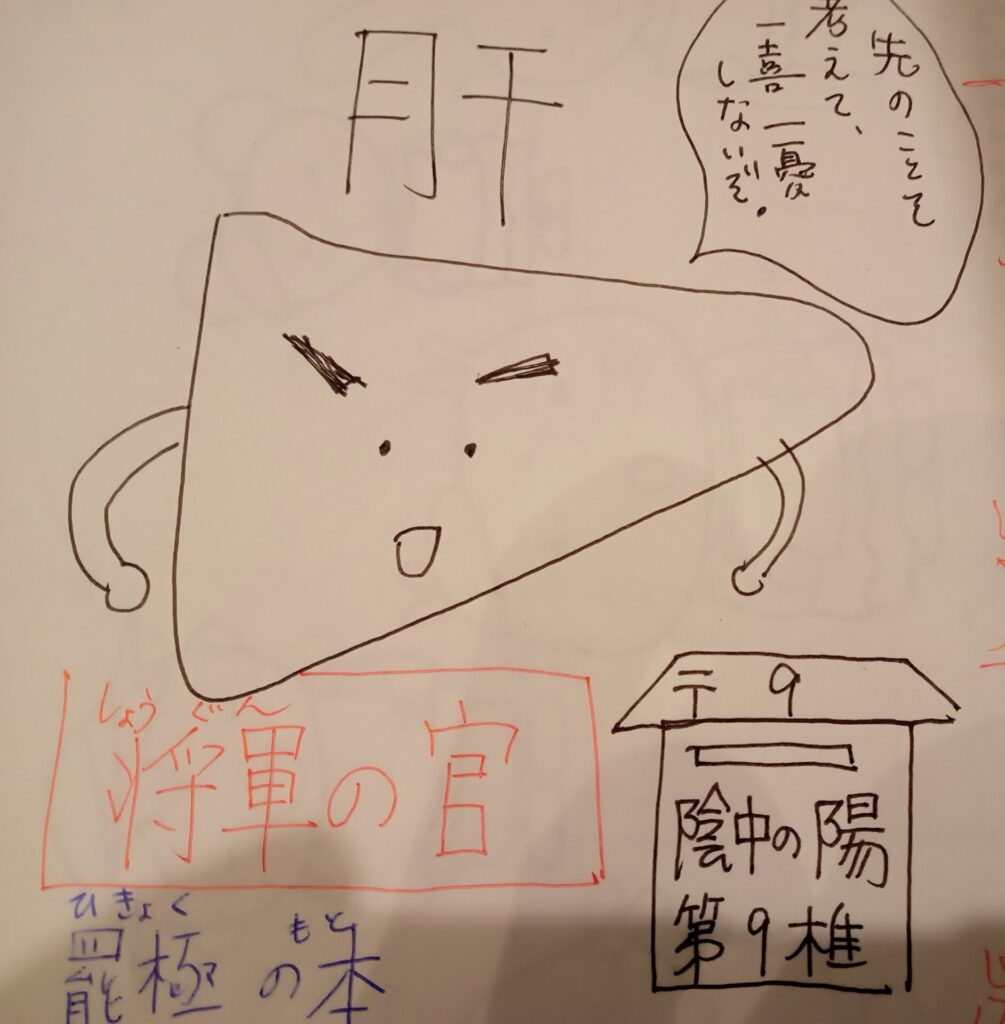 肝
先のことを
考えて、
一喜一憂
しないぞ。
しょうぐん
将軍の官
ひきょく もと
罷極の本
〒9
陰中の陽
第9椎